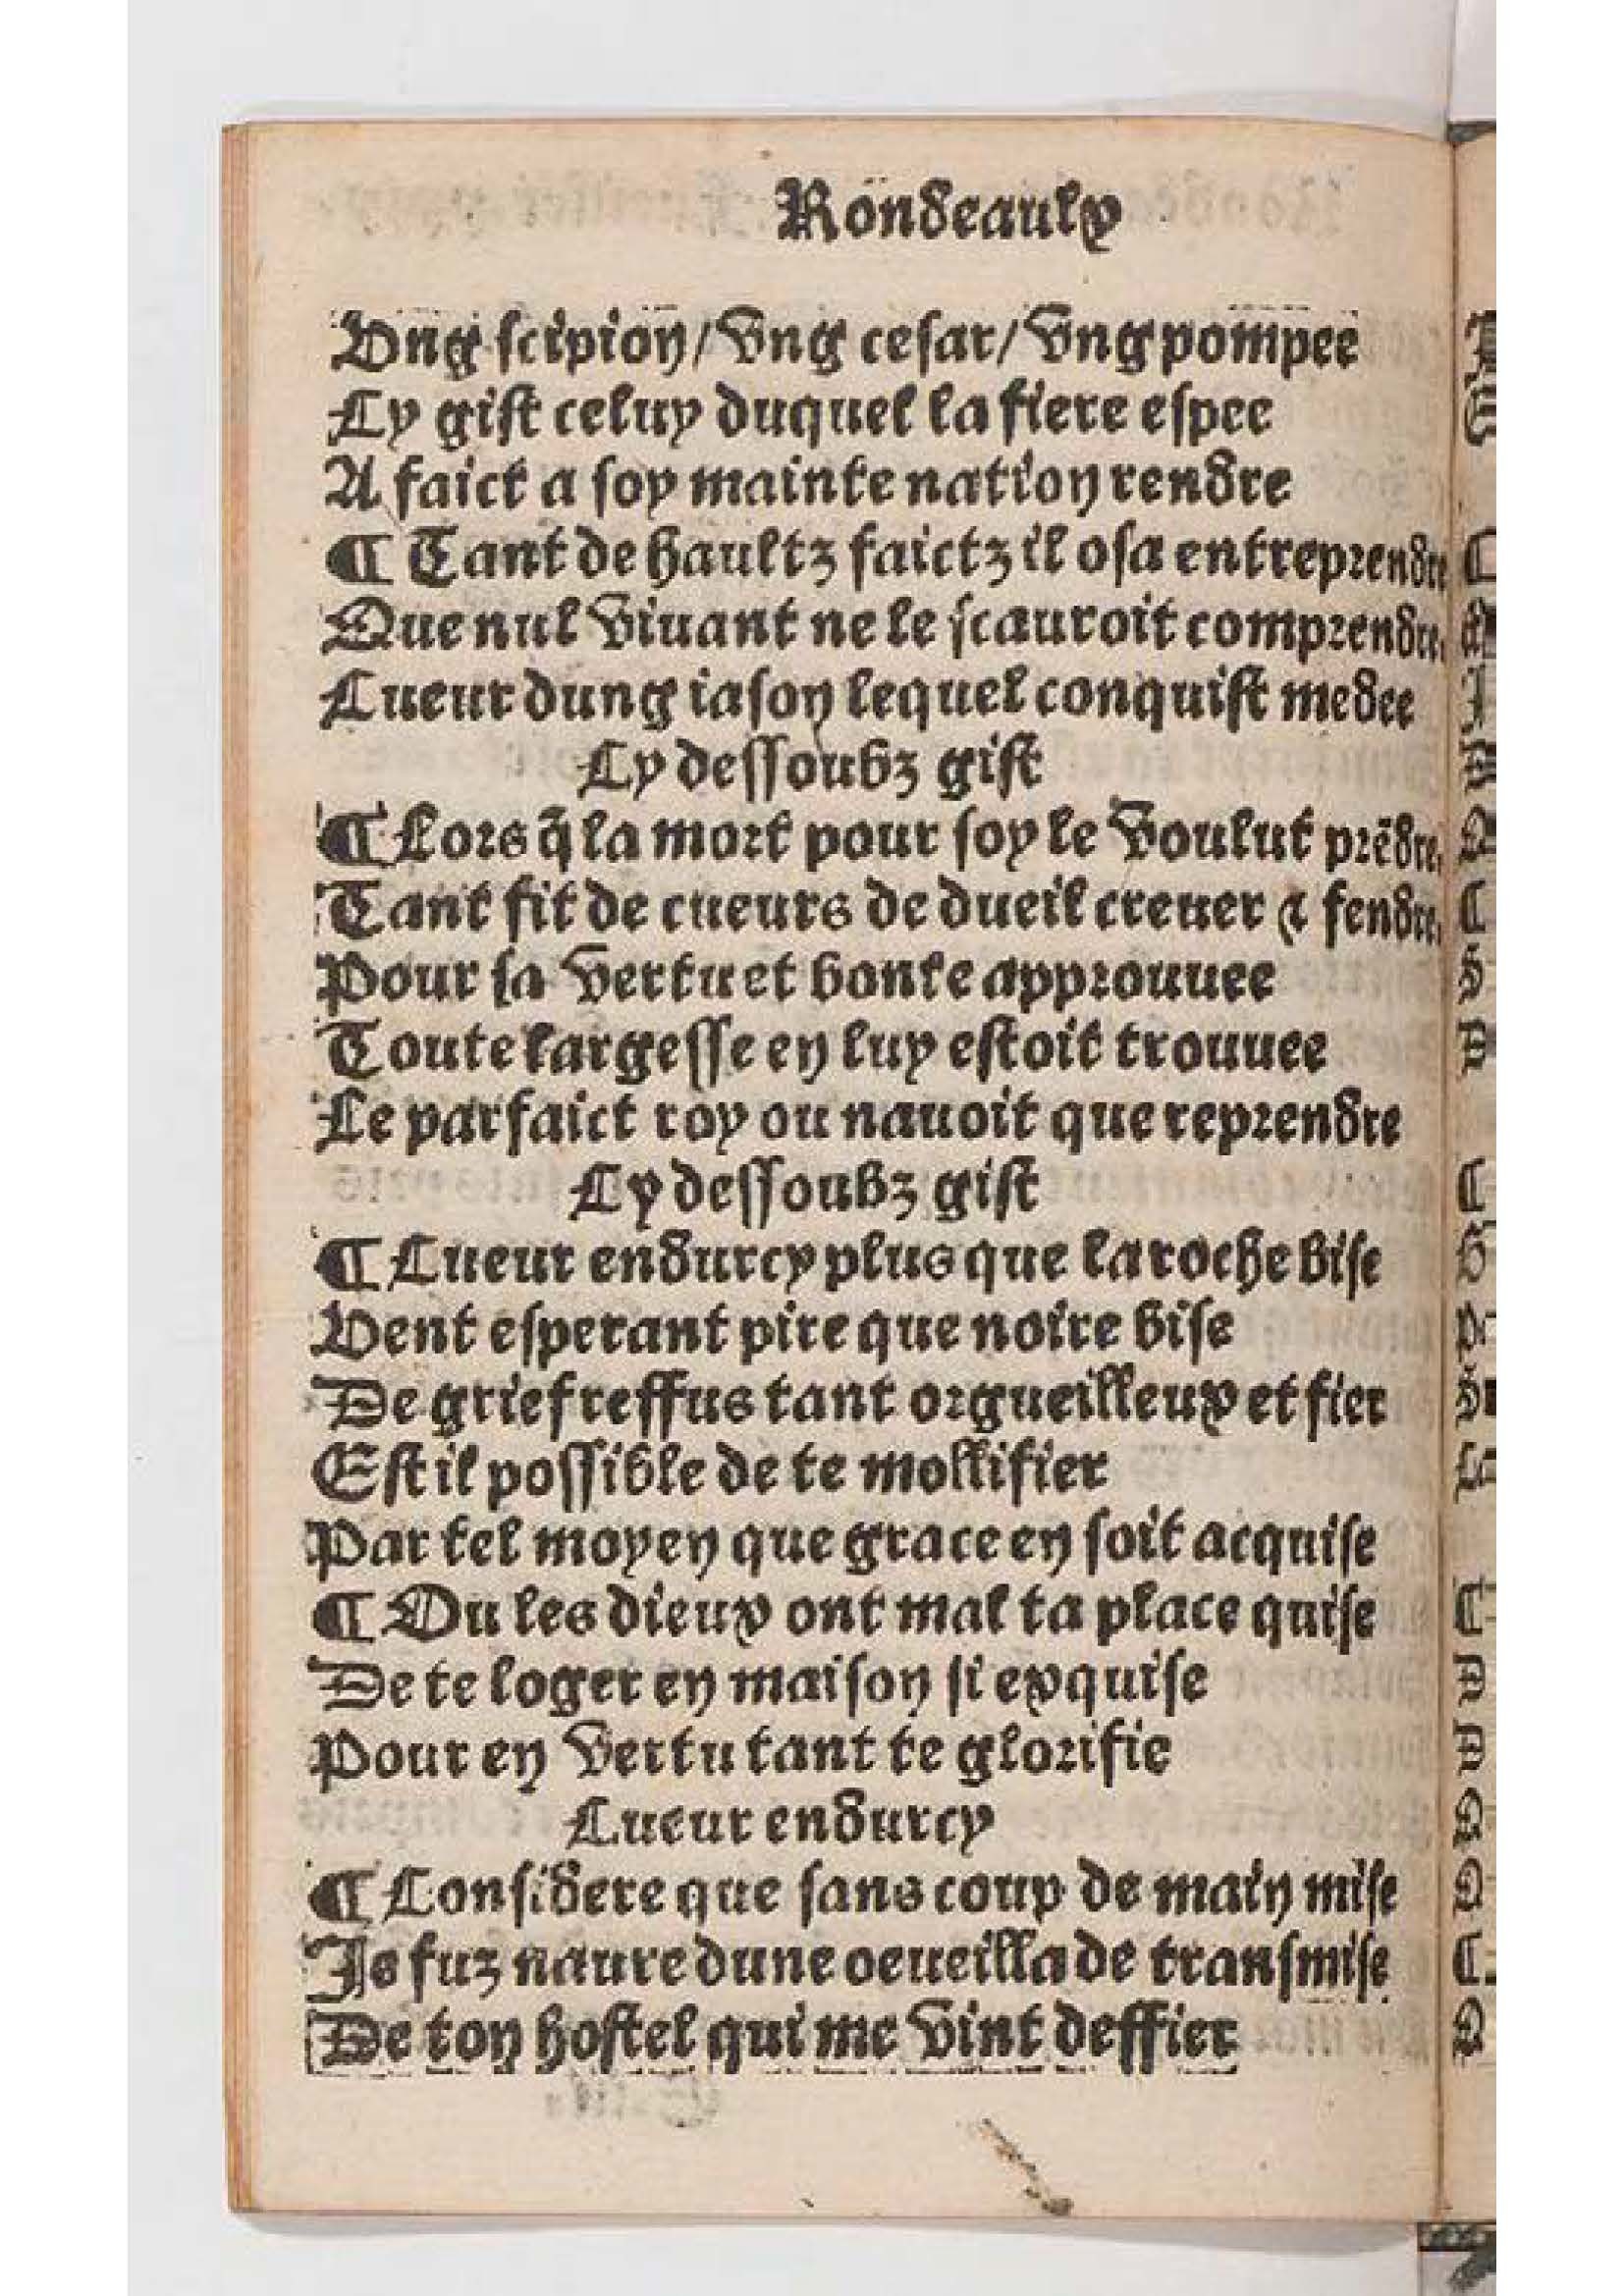 Rondeaulx
Vng scipion / vng cesar / vng pompee
Cy gist celuy duquel la fiere espee
A faict a soy mainte nation rendre
¶ Tant de haultz faictz il osa entreprendre
Que nul viuant ne le scauroit comprendre.
Cueur dung iason lequel conquist medee
Cy dessoubz gist
¶ Lors q̃ la mort pour soy le voulut prẽdre,
Tant fit de cueurs de dueil creuer & fendre,
Pour sa vertu et bonte approuuee
Toute largesse en luy estoit trouuee
Le parfaict roy ou nauoit que reprendre
Cy dessoubz gist
¶ Cueur endurcy plus que la roche bise
Vent esperant pire que noire bise
De grief reffus tant orgueilleux et fier
Est il possible de te mollifier
Par tel moyen que grace en soit acquise
¶ Ou les dieux ont mal ta place quise
De te loger en maison si exquise
Pour en vertu tant te glorifie
Cueur endurcy
¶ Considere que sans coup de main mise
Je fuz naure dune oeueillade transmise
De ton hostel qui me vint deffier